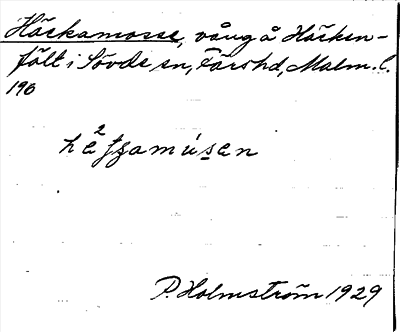 Häckamosse, vång å Häcken-
fält i Sövde sn, Färs hd, Malm. l.
196
P. Holmström 1929